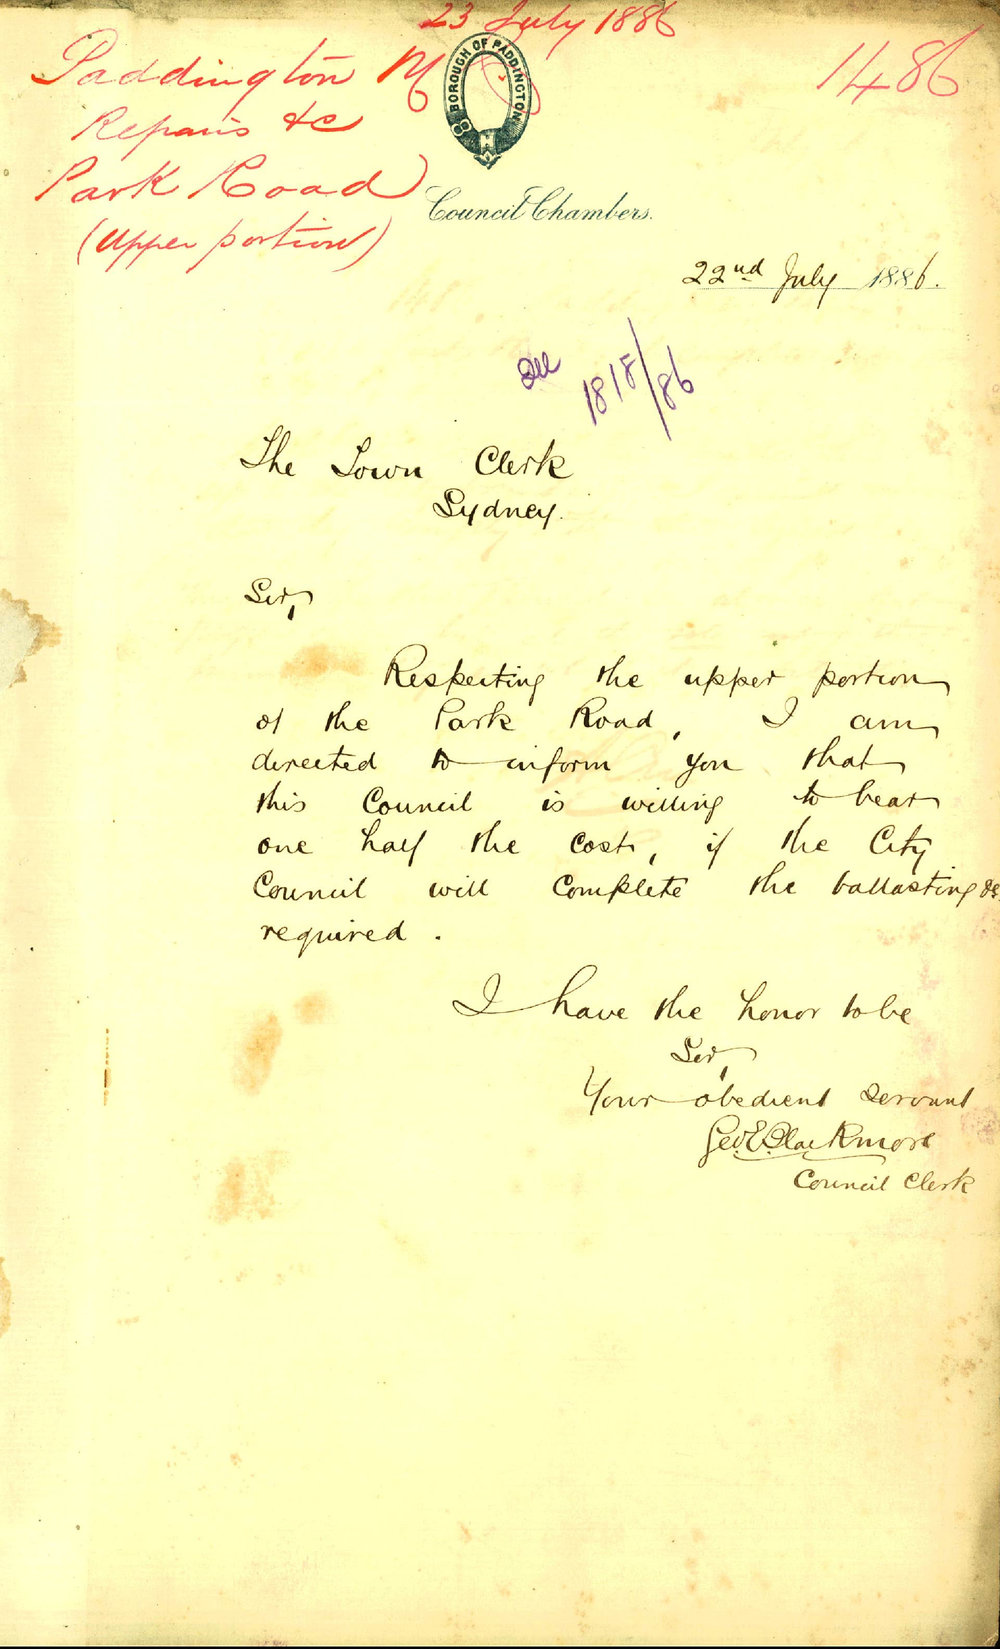 23 July 1886
1486
Paddington M C
Repairs &c
Park Road
(Upper portion)
BOROUGH OF PADDINGTON
Council Chambers.
22nd July 1886.
See 1818/86
The Town Clerk
Sydney.
Sir,
Respecting the upper portion
of the Park Road, I am
directed to inform you that
this Council is willing to bear
one half the cost, if the City
Council will complete the ballasting &c
required.
I have the honor to be
Sir,
Your obedient servant
Geo E. Blackmore
Council Clerk